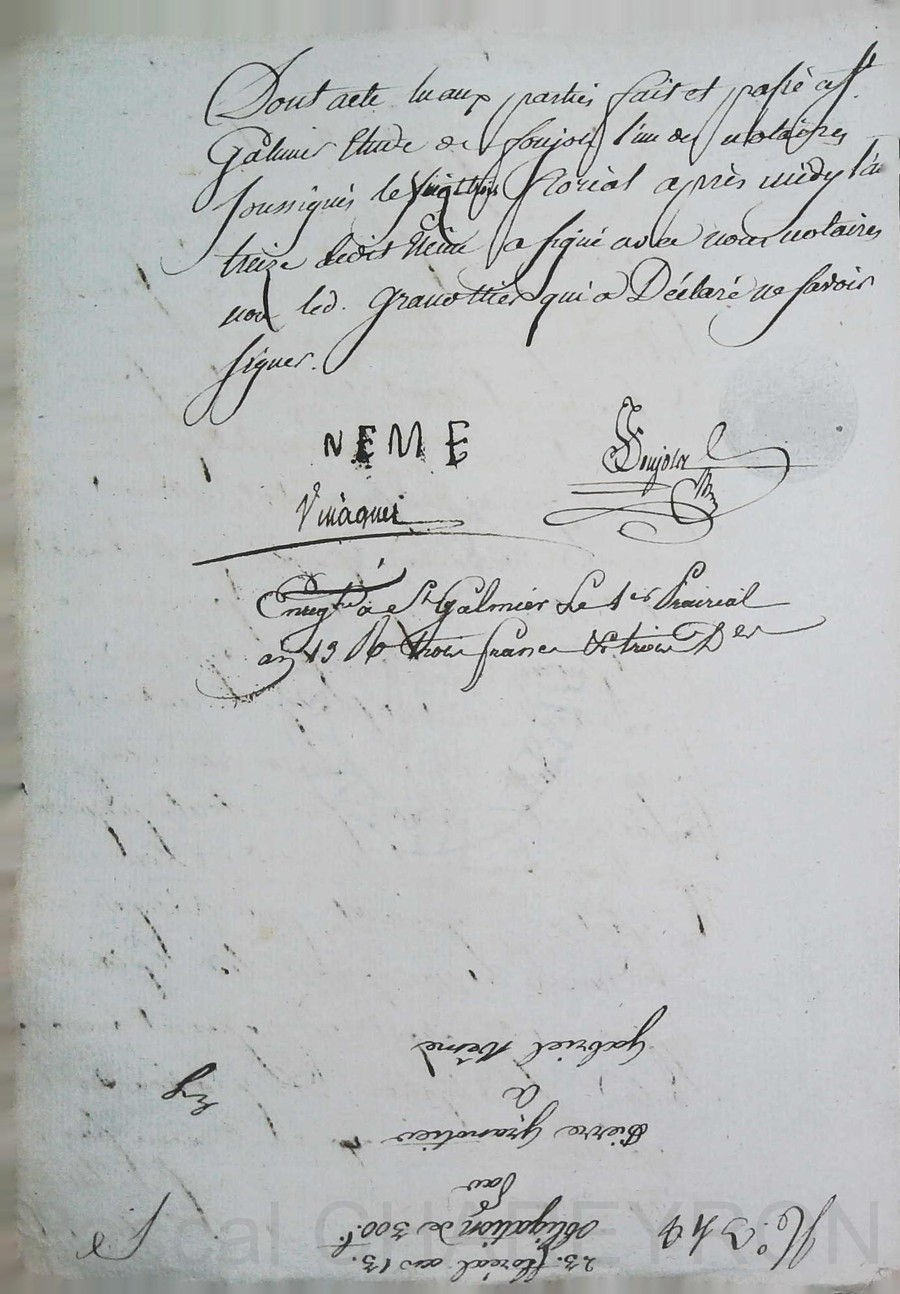 Dont acte lu aux parties fait et passé a St.
Galmier Etude de Soujols l'un des notaires
soussignés le vingt trois floréal après midy l'an
treize ledit Neime a signé avec nous notaires
non led. Granottier qui a Déclaré ne savoir
signer.
NEME
Soujols
Enregtré à St Galmier Le 1er Prairéal
an 13 Trois francs & trois D
23. floréal an 13.
N.° 349
obligation de 300 f.
par
Pierre Granotier
a
Gabriel Neime
Pascal CHAPEYRON